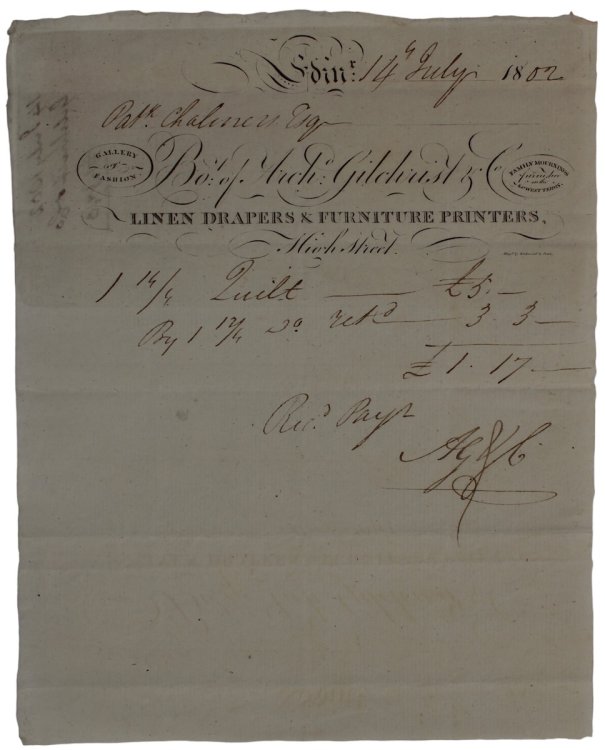 Edinr. 14th July 1802
Patk. Chalmers Esqr
GALLERY
OF
FASHION
Bot. of Archd. Gilchrist & Co
FAMILY MOURNINGS
furnished
on the
LOWEST TERMS
LINEN DRAPERS & FURNITURE PRINTERS,
High Street.
1 14/4 Quilt — £5. —
By 1 12/4 Do. retd — 3 3 —
£1. 17 —
Recd. Payt
AG & C